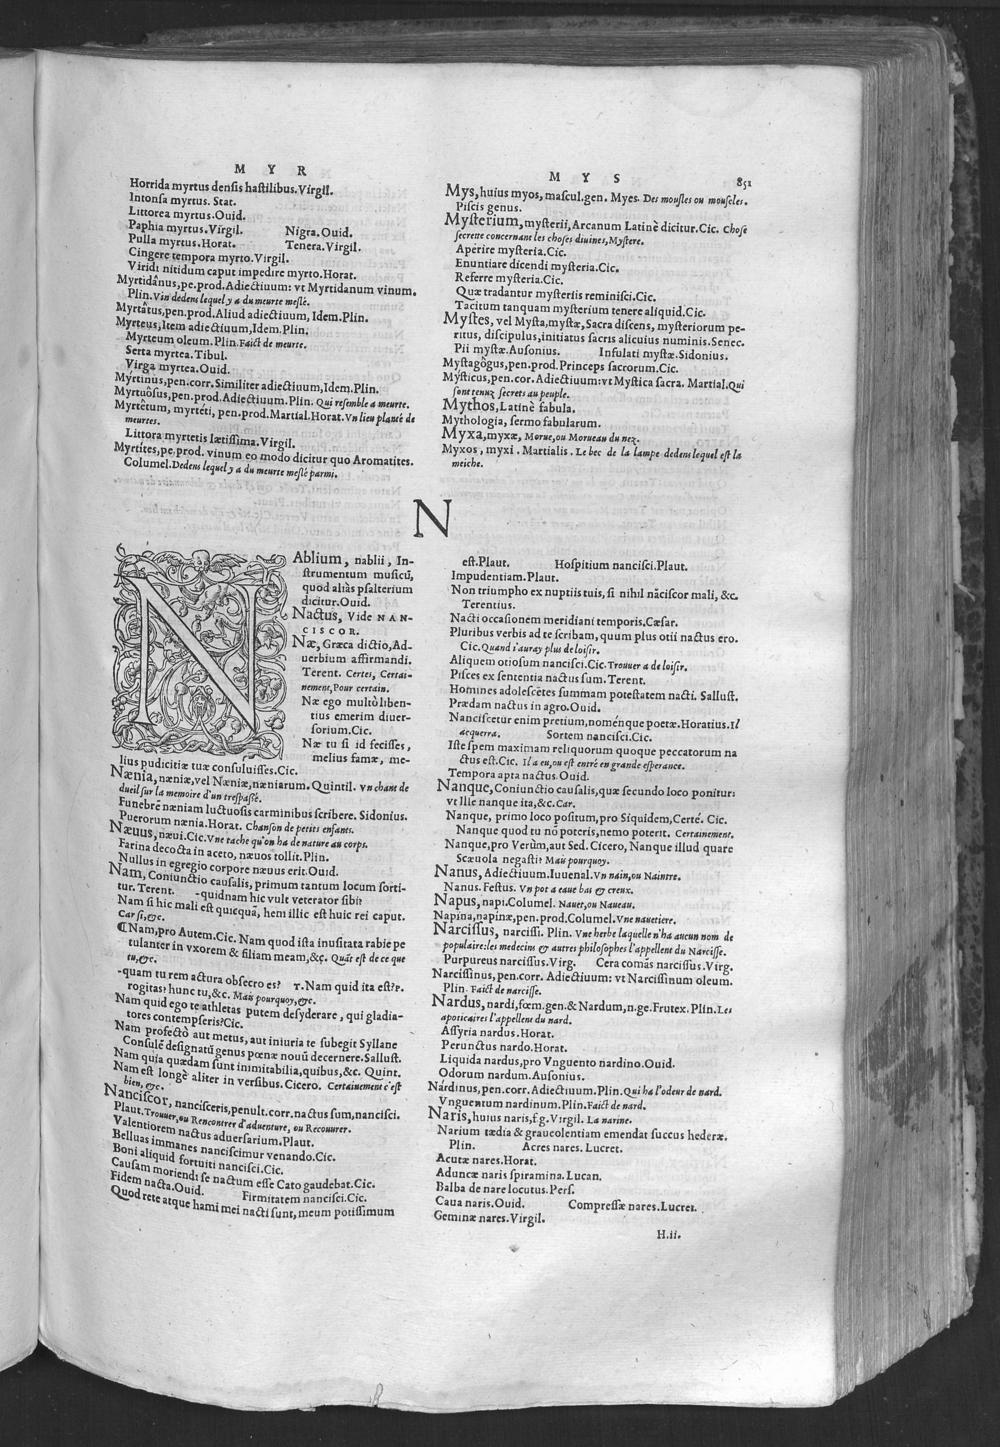 M Y R
Horrida myrtus densis hastilibus.Virgil.
Intonsa myrtus. Stat.
Littorea myrtus.Ouid.
Paphia myrtus.Virgil. Nigra.Ouid.
Pulla myrtus.Horat. Tenera.Virgil.
Cingere tempora myrto.Virgil.
Viridi nitidum caput impedire myrto.Horat.
Myrtidânus,pe.prod.Adiectiuum: vt Myrtidanum vinum.
Plin.Vin dedens lequel y a du meurte meslé.
Myrtâtus,pen.prod.Aliud adiectiuum, Idem.Plin.
Myrteus,Item adiectiuum,Idem.Plin.
Myrteum oleum.Plin.Faict de meurte.
Serta myrtea.Tibul.
Virga myrtea.Ouid.
Myrtinus,pen.corr.Similiter adiectiuum,Idem.Plin.
Myrtuôsus,pen.prod.Adiectiuum.Plin. Qui resemble a meurte.
Myrtêtum, myrteti, pen.prod.Martial.Horat.Vn lieu planté de
meurtes.
Littora myrtetis lætissima.Virgil.
Myrtîtes,pe.prod. vinum eo modo dicitur quo Aromatites.
Columel.Dedens lequel y a du meurte meslé parmi.
M Y S 851
Mys, huius myos, mascul.gen. Myes. Des mousles ou mouscles.
Piscis genus.
Mysterium, mysterii, Arcanum Latinè dicitur.Cic. Chose
secrette concernant les choses diuines,Mystere.
Aperire mysteria.Cic.
Enuntiare dicendi mysteria.Cic.
Referre mysteria.Cic.
Quæ tradantur mysteriis reminisci.Cic.
Tacitum tanquam mysterium tenere aliquid.Cic.
Mystes, vel Mysta,mystæ, Sacra discens, mysteriorum pe-
ritus, discipulus,initiatus sacris alicuius numinis.Senec.
Pii mystæ.Ausonius. Infulati mystæ.Sidonius.
Mystagôgus,pen.prod.Princeps sacrorum.Cic.
Mysticus,pen.cor.Adiectiuum:vt Mystica sacra. Martial.Qui
sont tenuz secrets au peuple.
Mythos, Latinè fabula.
Mythologia, sermo fabularum.
Myxa, myxæ, Morue,ou Morueau du nez.
Myxos, myxi. Martialis. Le bec de la lampe dedens lequel est la
meiche.
N
NAblium, nablii, In-
strumentum musicũ,
quod aliàs psalterium
dicitur.Ouid.
Nactus, Vide NAN-
CISCOR.
Næ, Græca dictio,Ad-
uerbium affirmandi.
Terent. Certes, Certai-
nement,Pour certain.
Næ ego multò liben-
tius emerim diuer-
sorium.Cic.
Næ tu si id fecisses,
melius famæ, me-
lius pudicitiæ tuæ consuluisses.Cic.
Nænia, næniæ,vel Næniæ,næniarum. Quintil. Vn chant de
dueil sur la memoire d'un trespassé.
Funebrẽ næniam luctuosis carminibus scribere. Sidonius.
Puerorum nænia.Horat. Chanson de petits enfants.
Næuus, næui.Cic.Vne tache qu'on ha de nature au corps.
Farina decocta in aceto, næuos tollit.Plin.
Nullus in egregio corpore næuus erit.Ouid.
Nam, Coniunctio causalis, primum tantum locum sorti-
tur. Terent. -quidnam hic vult veterator sibi?
Nam si hic mali est quicquã, hem illic est huic rei caput.
Car si,&c.
¶Nam,pro Autem.Cic. Nam quod ista inusitata rabie pe
tulanter in vxorem & filiam meam,&c. Quãt est de ce que
tu,&c.
-quam tu rem actura obsecro es? T.Nam quid ita est?P.
rogitas? hunc tu,&c. Mais pourquoy,&c.
Nam quid ego te athletas putem desyderare, qui gladia-
tores contempseris?Cic.
Nam profectò aut metus, aut iniuria te subegit Syllane
Consulẽ designatũ genus pœnæ nouũ decernere.Sallust.
Nam quia quædam sunt inimitabilia,quibus,&c. Quint.
Nam est longè aliter in versibus.Cicero. Certainement c'est
bien,&c.
Nanciscor, nancisceris,penult.corr.nactus sum,nancisci.
Plaut.Trouuer,ou Rencontrer d'aduenture, ou Recouurer.
Valentiorem nactus aduersarium.Plaut.
Belluas immanes nanciscimur venando.Cic.
Boni aliquid fortuiti nancisci.Cic.
Causam moriendi se nactum esse Cato gaudebat.Cic.
Fidem nacta.Ouid. Firmitatem nancisci.Cic.
Quod rete atque hami mei nacti sunt, meum potissimum
est.Plaut. Hospitium nancisci.Plaut.
Impudentiam.Plaut.
Non triumpho ex nuptiis tuis, si nihil nãciscor mali, &c.
Terentius.
Nacti occasionem meridiani temporis.Cæsar.
Pluribus verbis ad te scribam, quum plus otii nactus ero.
Cic.Quand i'auray plus de loisir.
Aliquem otiosum nancisci.Cic.Trouuer a de loisir.
Pisces ex sententia nactus sum.Terent.
Homines adolescẽtes summam potestatem nacti. Sallust.
Prædam nactus in agro.Ouid.
Nanciscetur enim pretium,noménque poetæ.Horatius.Il
acquerra. Sortem nancisci.Cic.
Iste spem maximam reliquorum quoque peccatorum na
ctus est.Cic. Il a eu,ou est entré en grande esperance.
Tempora apta nactus.Ouid.
Nanque, Coniunctio causalis,quæ secundo loco ponitur:
vt Ille nanque ita,&c.Car.
Nanque, primo loco positum,pro Siquidem,Certé. Cic.
Nanque quod tu nõ poteris,nemo poterit. Certainement.
Nanque,pro Verùm,aut Sed. Cicero, Nanque illud quare
Scæuola negasti? Mais pourquoy.
Nanus, Adiectiuum.Iuuenal.Vn nain,ou Naintre.
Nanus. Festus. Vn pot a eaue bas & creux.
Napus, napi.Columel. Nauet,ou Naueau.
Napina,napinæ,pen.prod.Columel.Vne nauetiere.
Narcissus, narcissi. Plin. Vne herbe laquelle n'ha aucun nom de
populaire:les medecins & autres philosophes l'appellent du Narcisse.
Purpureus narcissus.Virg. Cera comãs narcissus.Virg.
Narcissinus,pen.corr. Adiectiuum: vt Narcissinum oleum.
Plin.Faict de narcisse.
Nardus, nardi,fœm.gen.& Nardum,n.ge.Frutex.Plin.Les
apoticaires l'appellent du nard.
Assyria nardus.Horat.
Perunctus nardo.Horat.
Liquida nardus,pro Vnguento nardino.Ouid.
Odorum nardum.Ausonius.
Nárdinus,pen.corr.Adiectiuum.Plin.Qui ha l'odeur de nard.
Vnguentum nardinum.Plin.Faict de nard.
Naris, huius naris,f g.Virgil. La narine.
Narium tædia & graueolentiam emendat succus hederæ.
Plin. Acres nares. Lucret.
Acutæ nares.Horat.
Aduncæ naris spiramina.Lucan.
Balba de nare locutus.Pers.
Caua naris.Ouid. Compressæ nares.Lucret.
Geminæ nares.Virgil.
H.ii.